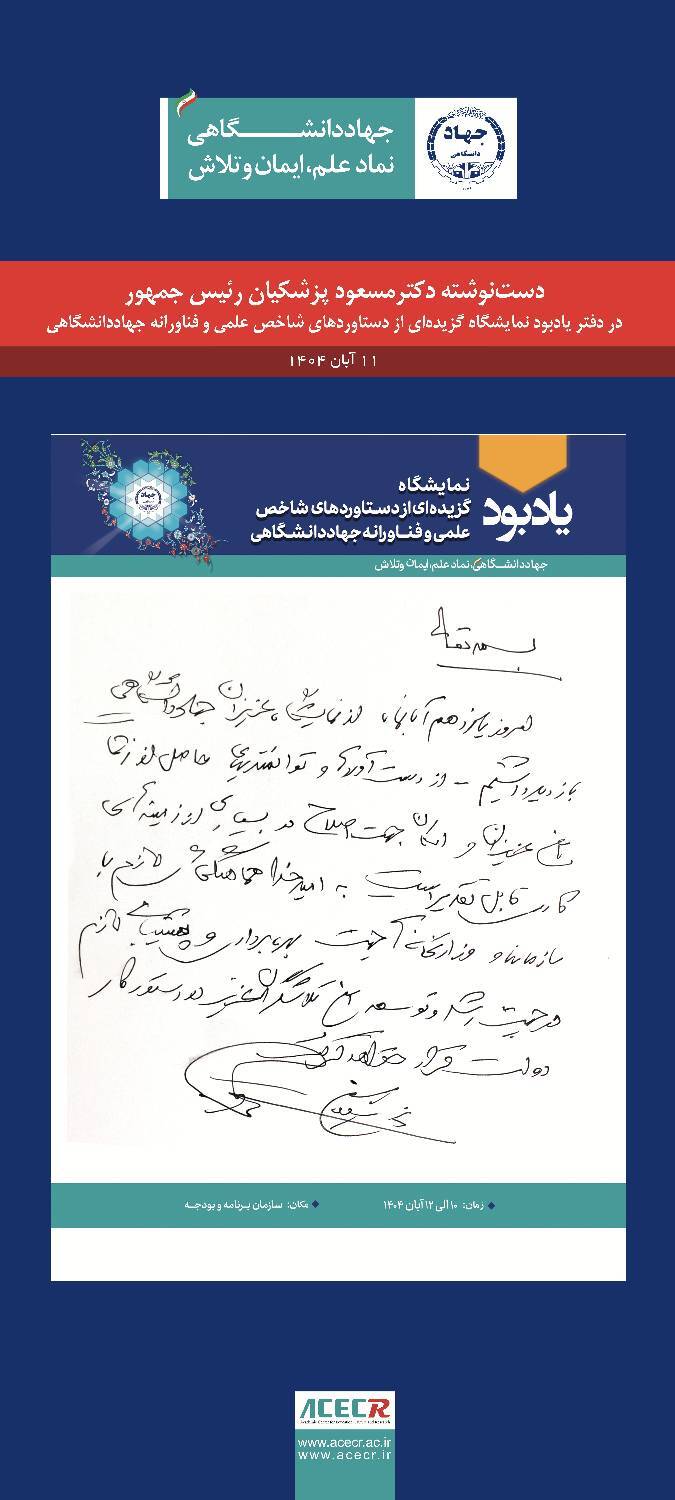 جهاددانشگاهی
نماد علم، ایمان و تلاش
جهاد
دانشگاهی
دست‌نوشته دکتر مسعود پزشکیان رئیس جمهور
در دفتر یادبود نمایشگاه گزیده‌ای از دستاوردهای شاخص علمی و فناورانه جهاددانشگاهی
۱۱ آبان ۱۴۰۴
یادبود
نمایشگاه
گزیده‌ای از دستاوردهای شاخص
علمی و فناورانه جهاددانشگاهی
جهاد
جهاددانشگاهی، نماد علم، ایمان و تلاش
بسمه تعالی
امروز یازدهم آبانماه از نمایشگاه عزیزان جهاددانشگاهی
بازدید داشتیم - از دست آوردها و توانمندیهای حاصل از
این عزیزان و امکان جهت اصلاح در بسیاری از زمینه های
کاری قابل تقدیر است به امید خدا هماهنگی لازم با
سازمانها و وزارتخانه جهت بهره‌برداری و پشتیبانی لازم
در جهت رشد و توسعه این تلاشگران عزیز در دستور کار
دولت قرار خواهد گرفت
زمان: ۱۰ الی ۱۲ آبان ۱۴۰۴
مکان: سازمان برنامه و بودجه
ACECR
www.acecr.ac.ir
www.acecr.ir